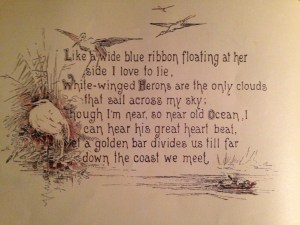 Like a wide blue ribbon floating at her
side I love to lie,
White-winged Herons are the only clouds
that sail across my sky;
Though I'm near, so near old Ocean, I
can hear his great heart beat,
Yet a golden bar divides us till far
down the coast we meet.